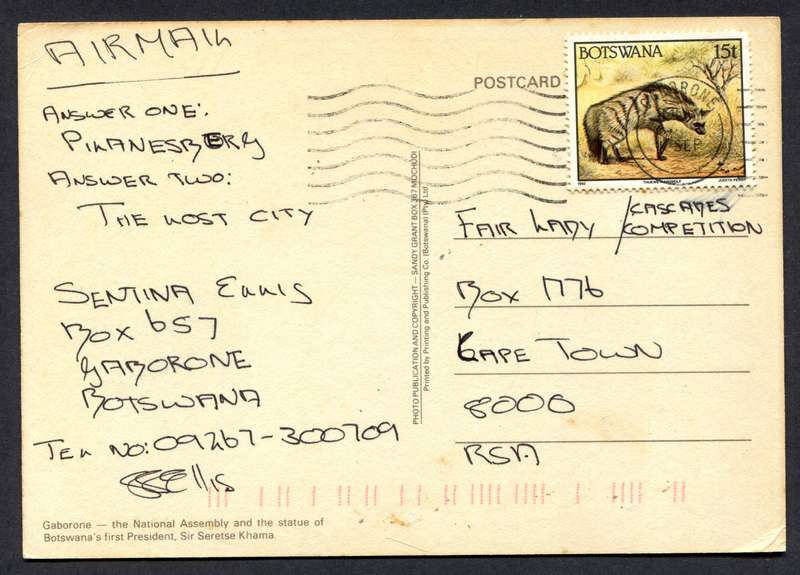 AIRMAIL
ANSWER ONE:
PILANESBERG
ANSWER TWO:
THE LOST CITY
SENTINA ELLIS
BOX 657
GABORONE
BOTSWANA
TEL NO: 09267-300709
Ellis
Gaborone — the National Assembly and the statue of
Botswana's first President, Sir Seretse Khama.
PHOTO PUBLICATION AND COPYRIGHT — SANDY GRANT BOX 367 MOCHUDI
Printed by Printing and Publishing Co. (Botswana) (Pty) Ltd
POSTCARD
BOTSWANA 15t
1992
GABORONE
SEP
FAIR LADY / CASCADES
COMPETITION
BOX 1776
CAPE TOWN
8000
RSA